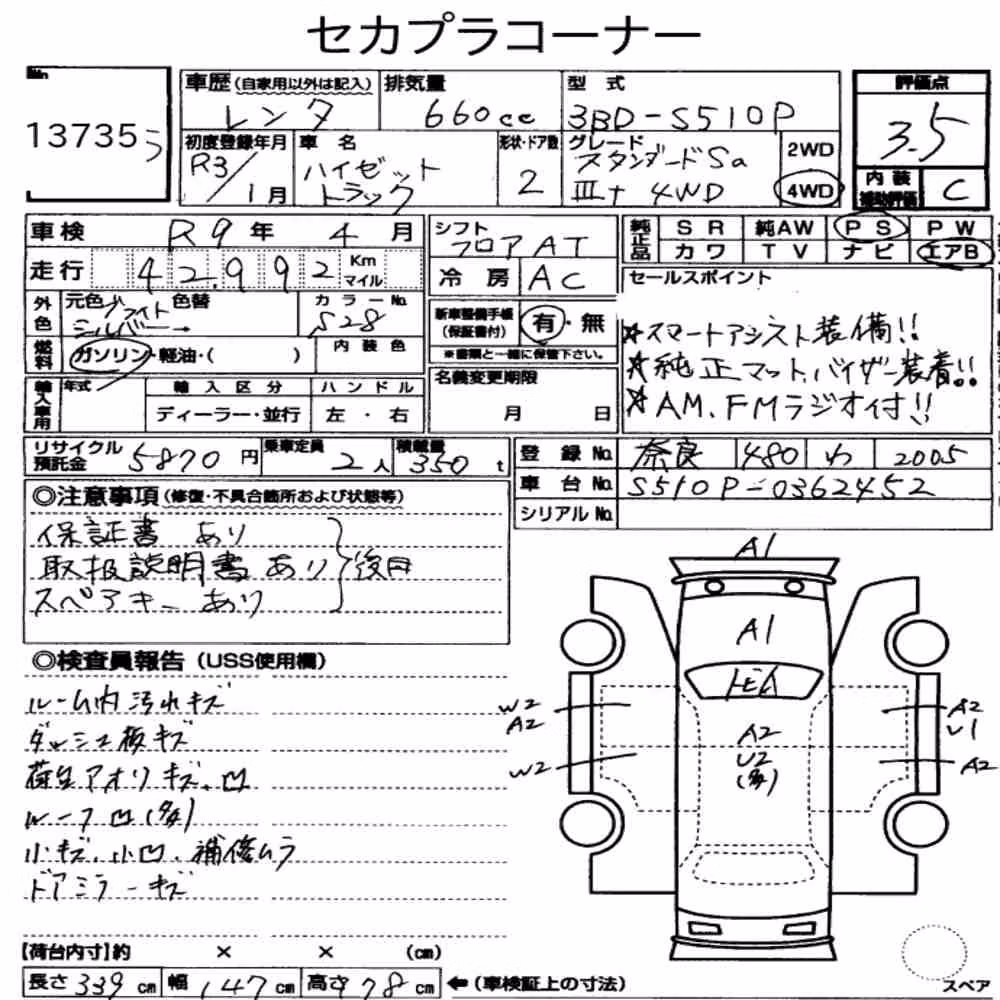 セカプラコーナー
No.
13735
車歴(自家用以外は記入) 排気量 型式 評価点
レンタ 660cc 3BD-S510P 3.5
初度登録年月 車名 形状・ドア数 グレード 2WD
R3/1月 ハイゼットトラック 2 スタンダードSa
IIIt 4WD 4WD
内装補助評価 C
車検 R9年4月 シフト フロアAT
走行 42,992 Km マイル
冷房 AC
純正品 SR 純AW PS PW
カワ TV ナビ エアB
外色 元色 ブライトシルバー 色替 カラーNo. S28
新車整備手帳(保証書付) 有・無
※書類と一緒に保管下さい。
セールスポイント
*スマートアシスト装備!!
*純正マット,バイザー装着!!
*AM,FMラジオ付!!
燃料 ガソリン・軽油・( ) 内装色
輸入車用 年式 輸入区分 ハンドル
ディーラー・並行 左・右
名義変更期限
月 日
リサイクル預託金 5870円 乗車定員 2人 積載量 350t
登録No. 奈良 480 わ 2005
車台No. S510P-0362452
シリアルNo.
◎注意事項(修復・不具合箇所および状態等)
保証書 あり
取扱説明書 あり 後日
スペアキー あり
◎検査員報告(USS使用欄)
ルーム内汚れキズ
ダッシュ板キズ
荷台アオリキズ、凹
ルーフ凹(多)
小キズ、小凹、補修ムラ
ドアミラーキズ
A1
A1
W2
A2
W2
A2
U2
(多)
A2
U1
A2
【荷台内寸】約 × × (cm)
長さ 339cm 幅 147cm 高さ 178cm ←(車検証上の寸法)
スペア